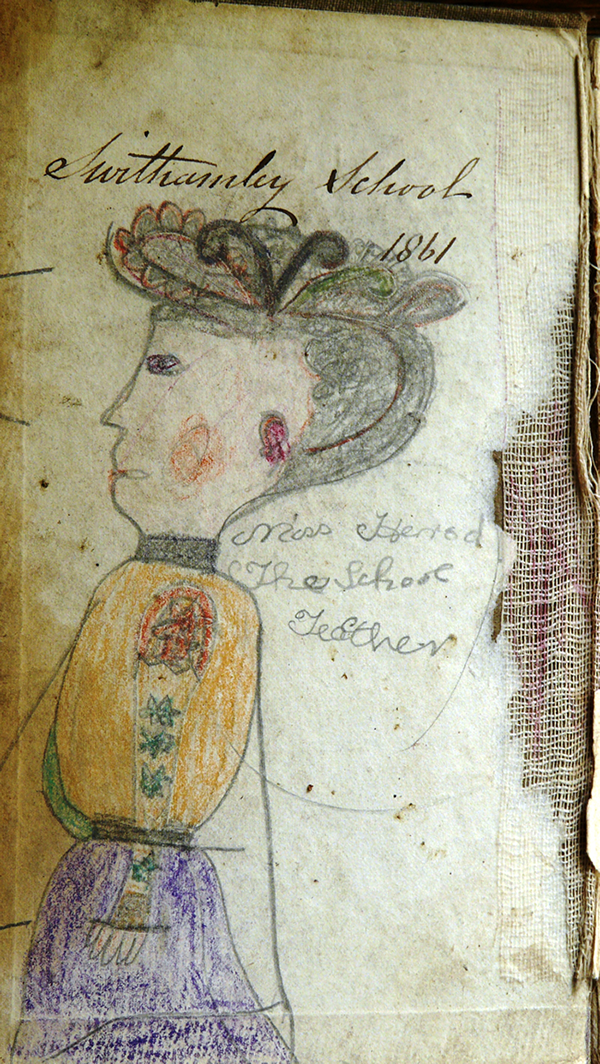 Swithamley School
1861
Miss Herrod
The School
Teather